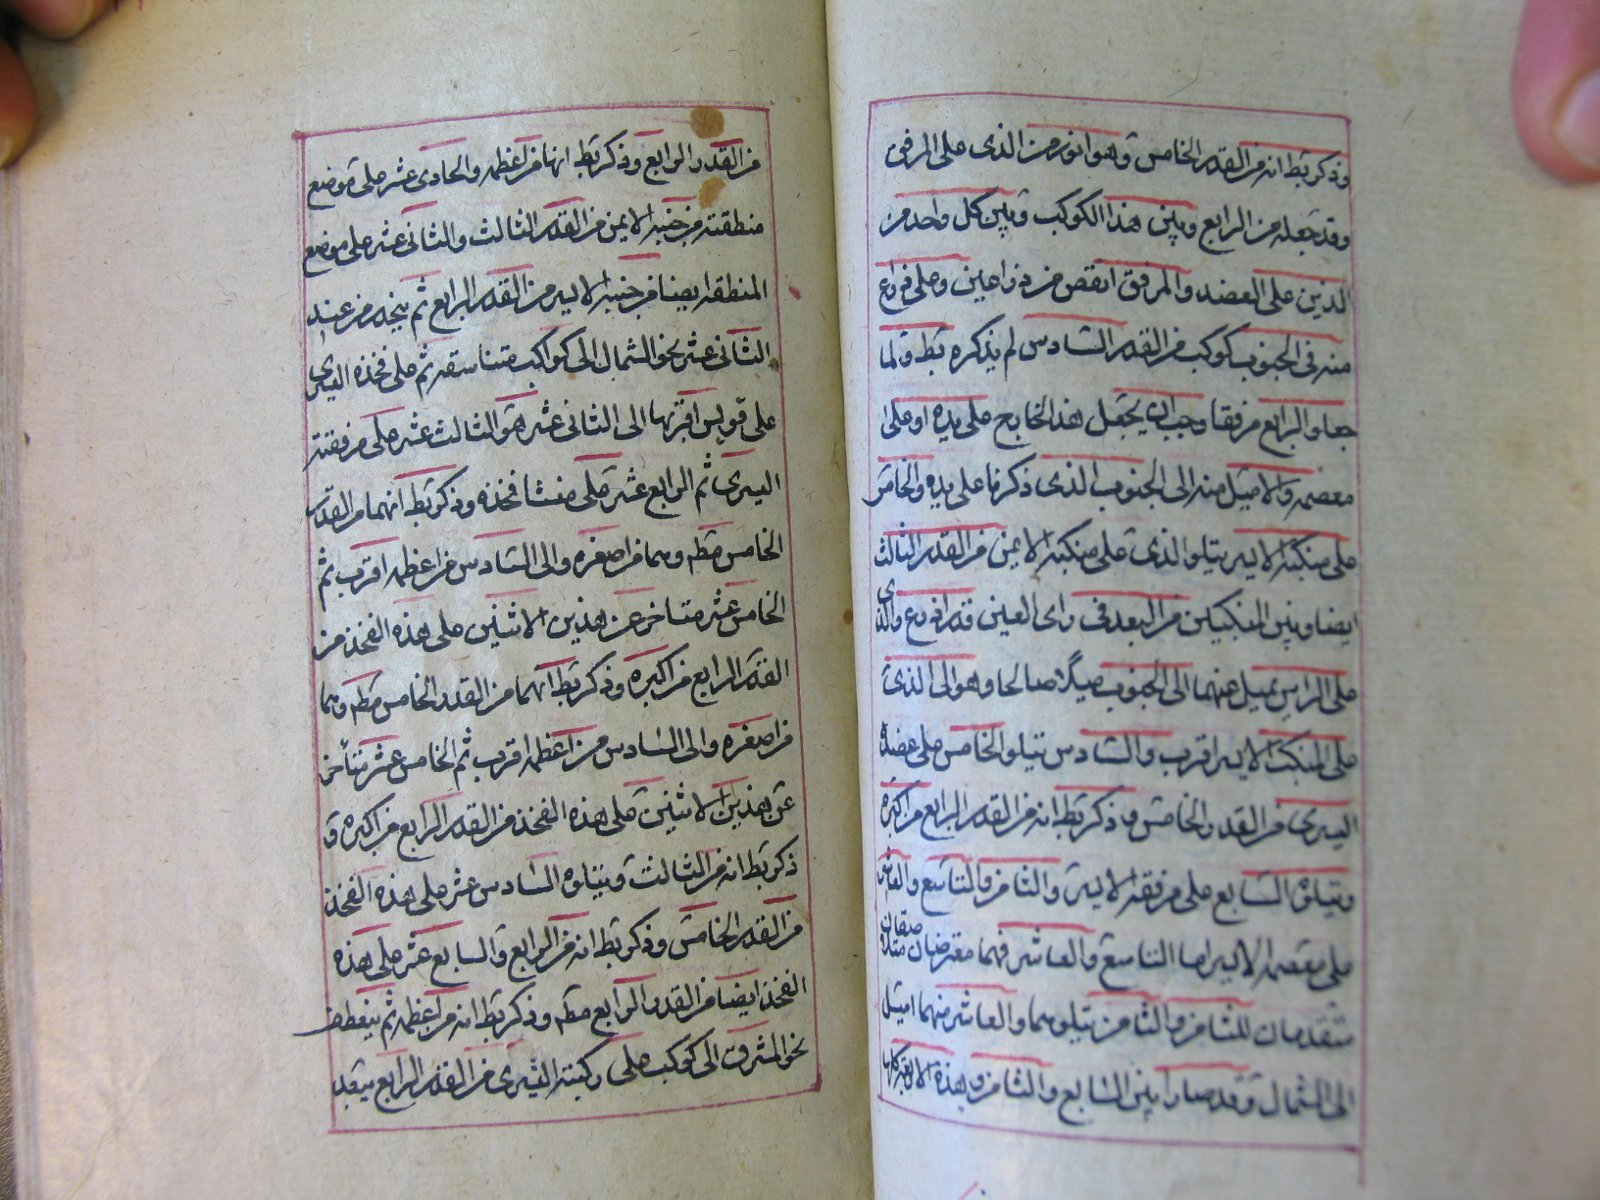 وذكر بط انه من القدر الخامس وهو انور من الذى على المرفق
وقد جعله من الرابع وبين هذا الكوكب وبين كل واحد من
الذين على العضد والمرفق انقص من ذراعين وعلى ذراع
منه فى الجنوب كوكب من القدر السادس لم يذكره بط ولما
جعلوا الرابع مرفقا وجب ان يجعل هذا الخارج على يده او على
معصمه والاميل منه الى الجنوب الذى ذكرنا على يده والخامس
على منكبه الايسر يتلو الذى على منكبه الايمن من القدر الثالث
ايضا وبين المنكبين من البعد فى راى العين قدر اذرع والذى
على الراس يميل عنهما الى الجنوب ميلا صالحا وهو الى الذى
على المنكب الايسر اقرب والسادس يتلو الخامس على عضده
اليسرى من القدر الخامس وذكر بط انه من القدر الرابع من اكبره
ويتلوه السابع على مرفقه الايسر والثامن والتاسع والعاشر
على معصمه الايسر اما التاسع والعاشر فهما معترضان متلاصقان
متقدمان للثامن والثامن يتلوهما والعاشر منهما اميل
الى الشمال وقد صار ا بين السابع والثامن وهذه الاربعة كلها
من القدر الرابع وذكر بط انها من اعظمه والحادى عشر على موضع
منطقته من جنبه الايمن من القدر الثالث والثانى عشر على موضع
المنطقة ايضا من جنبه الايسر من القدر الرابع ثم ينحدر من عند
الثانى عشر نحو الشمال الى كواكب متناسقة ثم على فخذه اليسرى
على قوس اقربها الى الثانى عشر هو الثالث عشر على مرفقته
اليسرى ثم الرابع عشر على منشا فخذه وذكر بط انهما من القدر
الخامس مط وهما من اصغره والى السادس من اعظمه اقرب ثم
الخامس عشر متاخر عن هذين الاثنين على هذه الفخذ من
القدر الرابع من اكبره وذكر بط انهما من القدر الخامس مط وهما
من اصغره والى السادس من اعظمه اقرب ثم الخامس عشر متأخر
عن هذين الاثنين على هذه الفخذ من القدر الرابع من اكبره و
ذكر بط انه من الثالث ويتلوه السادس عشر على هذه الفخذ
من القدر الخامس وذكر بط انه من الرابع والسابع عشر على هذه
الفخذ ايضا من القدر الرابع مط وذكر بط انه من اعظمه ثم ينعطف
نحو المشرق الى كوكب على ركبته اليسرى من القدر الرابع يتقد